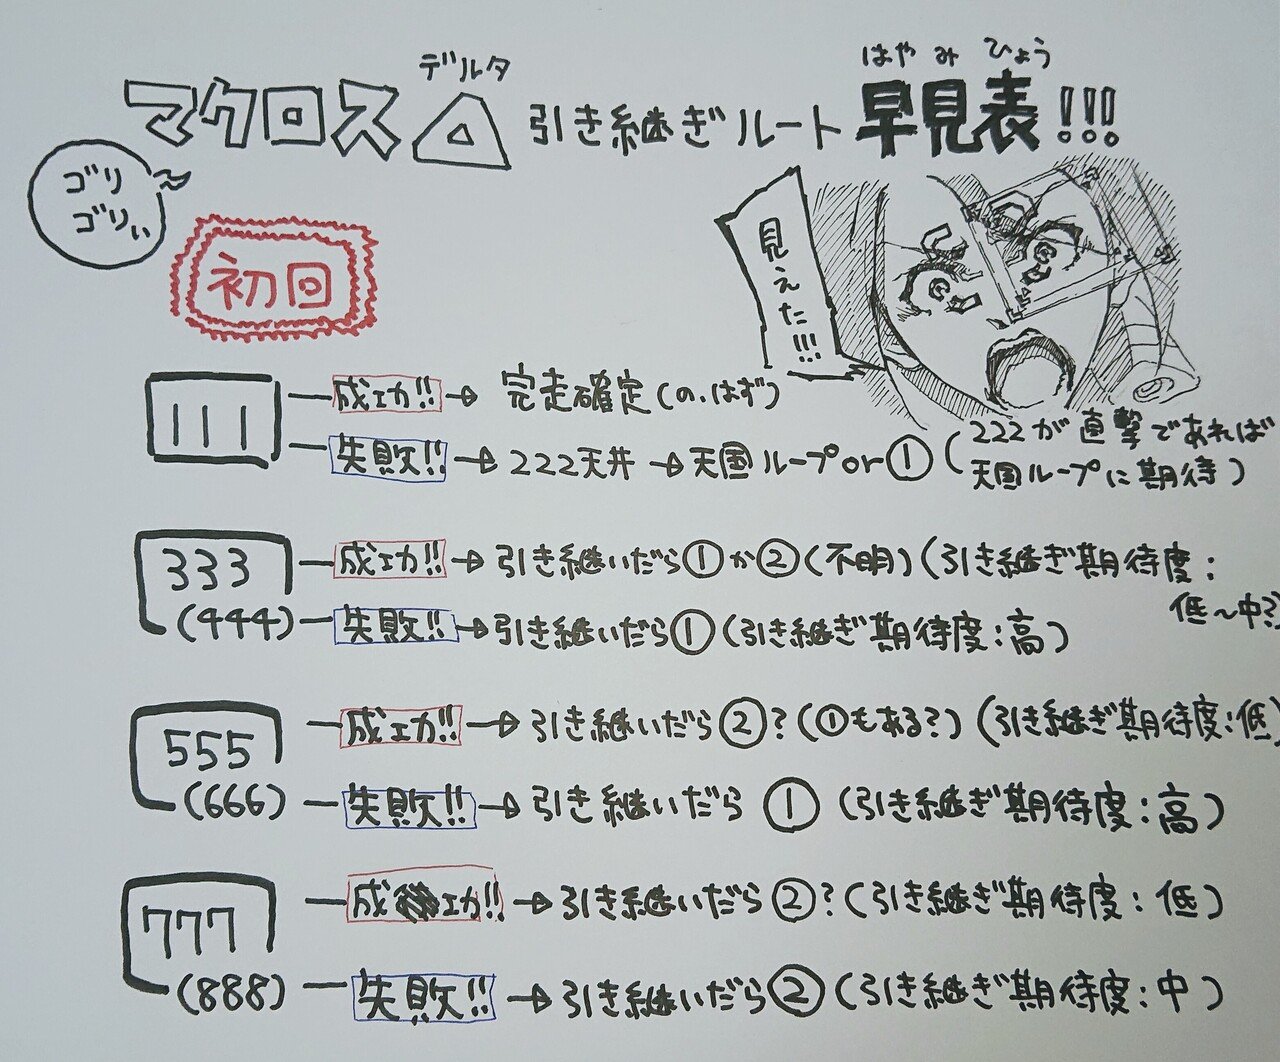 はやみひょう
デルタ
マクロス△ 引き継ぎルート 早見表!!!
ゴリ
ゴリぃ
初回
見えた!!!
111
成功!! → 完走確定(の、はず)
失敗!! → 222天井 → 天国ループor① (222が直撃であれば
天国ループに期待)
333
(444)
成功!! → 引き継いだら①か②(不明)(引き継ぎ期待度:
低〜中?)
失敗!! → 引き継いだら①(引き継ぎ期待度:高)
555
(666)
成功!! → 引き継いだら②?(①もある?)(引き継ぎ期待度:低)
失敗!! → 引き継いだら ① (引き継ぎ期待度:高)
777
(888)
成功!! → 引き継いだら②?(引き継ぎ期待度:低)
失敗!! → 引き継いだら②(引き継ぎ期待度:中)